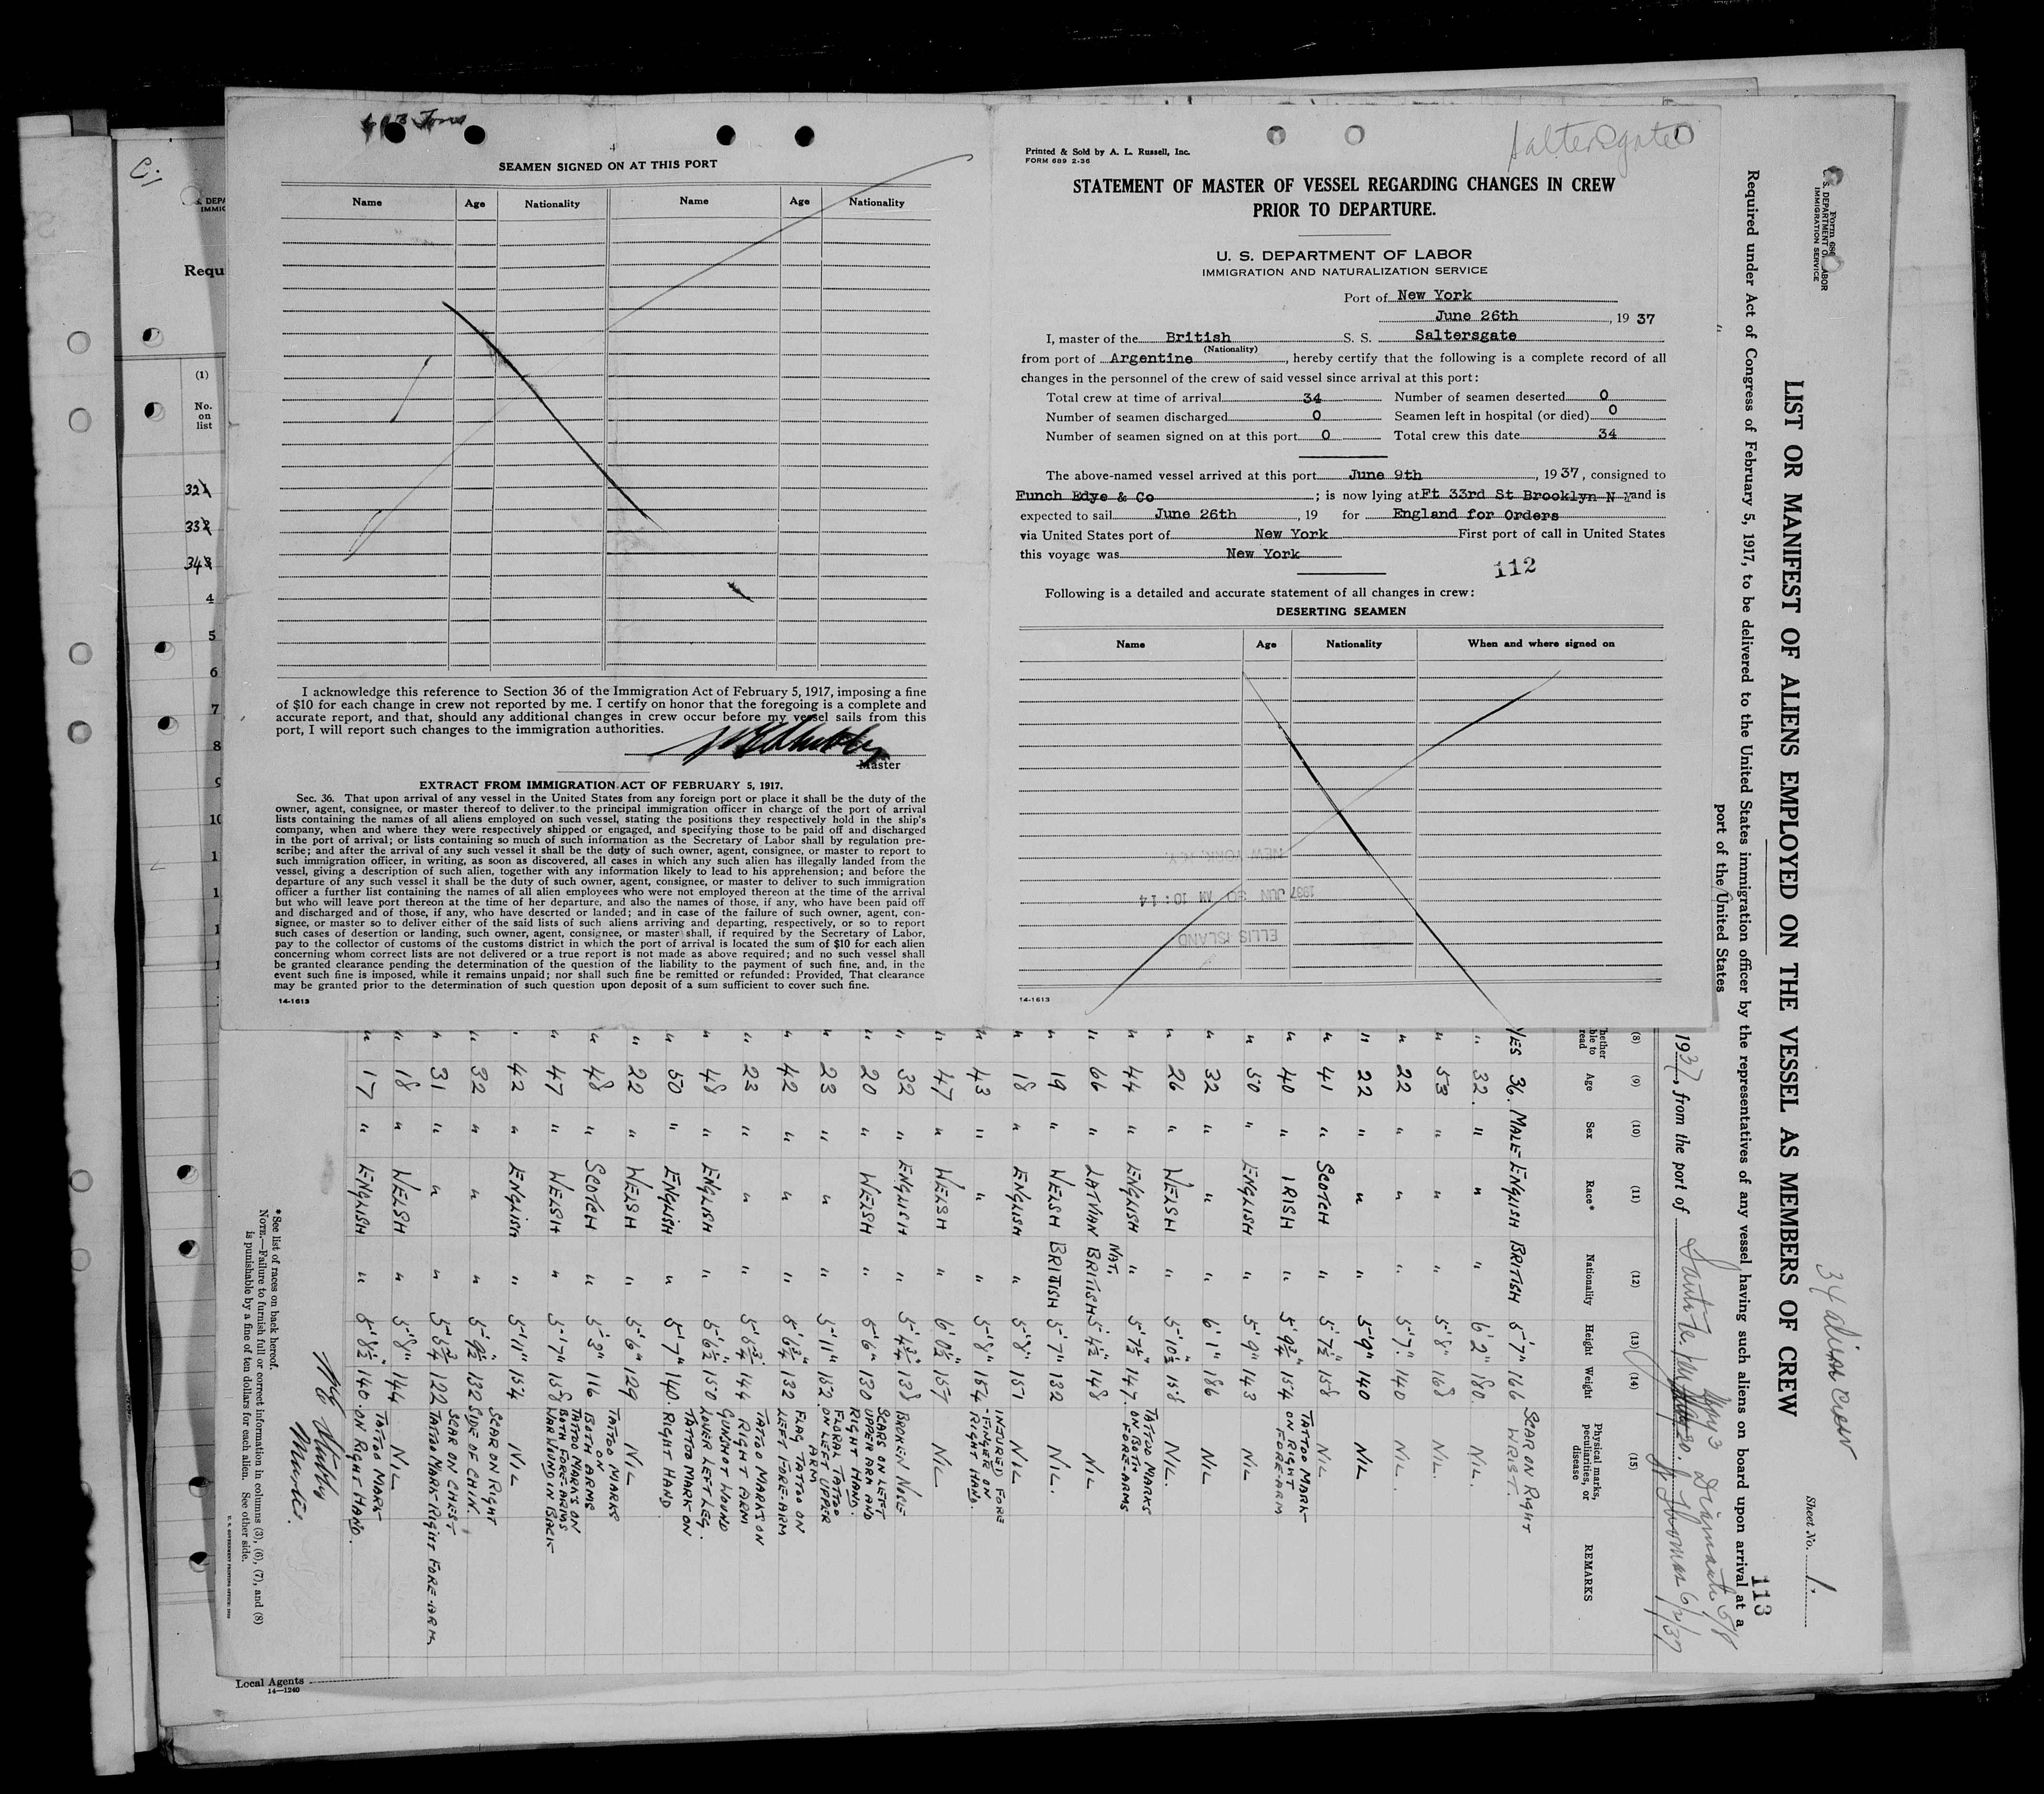 SEAMEN SIGNED ON AT THIS PORT
Name Age Nationality Name Age Nationality
I acknowledge this reference to Section 36 of the Immigration Act of February 5, 1917, imposing a fine
of $10 for each change in crew not reported by me. I certify on honor that the foregoing is a complete and
accurate report, and that, should any additional changes in crew occur before my vessel sails from this
port, I will report such changes to the immigration authorities.
Master
EXTRACT FROM IMMIGRATION ACT OF FEBRUARY 5, 1917.
Sec. 36. That upon arrival of any vessel in the United States from any foreign port or place it shall be the duty of the
owner, agent, consignee, or master thereof to deliver to the principal immigration officer in charge of the port of arrival
lists containing the names of all aliens employed on such vessel, stating the positions they respectively hold in the ship's
company, when and where they were respectively shipped or engaged, and specifying those to be paid off and discharged
in the port of arrival; or lists containing so much of such information as the Secretary of Labor shall by regulation pre-
scribe; and after the arrival of any such vessel it shall be the duty of such owner, agent, consignee, or master to report to
such immigration officer, in writing, as soon as discovered, all cases in which any such alien has illegally landed from the
vessel, giving a description of such alien, together with any information likely to lead to his apprehension; and before the
departure of any such vessel it shall be the duty of such owner, agent, consignee, or master to deliver to such immigration
officer a further list containing the names of all alien employees who were not employed thereon at the time of the arrival
but who will leave port thereon at the time of her departure, and also the names of those, if any, who have been paid off
and discharged and of those, if any, who have deserted or landed; and in case of the failure of such owner, agent, con-
signee, or master so to deliver either of the said lists of such aliens arriving and departing, respectively, or so to report
such cases of desertion or landing, such owner, agent, consignee, or master shall, if required by the Secretary of Labor,
pay to the collector of customs of the customs district in which the port of arrival is located the sum of $10 for each alien
concerning whom correct lists are not delivered or a true report is not made as above required; and no such vessel shall
be granted clearance pending the determination of the question of the liability to the payment of such fine, and, in the
event such fine is imposed, while it remains unpaid; nor shall such fine be remitted or refunded: Provided, That clearance
may be granted prior to the determination of such question upon deposit of a sum sufficient to cover such fine.
14-1613
Saltersgate
Printed & Sold by A. L. Russell, Inc.
FORM 689 2-36
STATEMENT OF MASTER OF VESSEL REGARDING CHANGES IN CREW
PRIOR TO DEPARTURE.
U. S. DEPARTMENT OF LABOR
IMMIGRATION AND NATURALIZATION SERVICE
Port of New York
June 26th, 19 37
I, master of the British S. S. Saltersgate
(Nationality)
from port of Argentine, hereby certify that the following is a complete record of all
changes in the personnel of the crew of said vessel since arrival at this port:
Total crew at time of arrival 34 Number of seamen deserted 0
Number of seamen discharged 0 Seamen left in hospital (or died) 0
Number of seamen signed on at this port 0 Total crew this date 34
The above-named vessel arrived at this port June 9th, 19 37, consigned to
Funch Edye & Co; is now lying at Ft 33rd St Brooklyn N Y and is
expected to sail June 26th, 19 for England for Orders
via United States port of New York First port of call in United States
this voyage was New York
112
Following is a detailed and accurate statement of all changes in crew:
DESERTING SEAMEN
Name Age Nationality When and where signed on
NEW YORK, N.Y.
1937 JUN 30 AM 10:14
ELLIS ISLAND
14-1613
Form 689
U. S. DEPARTMENT OF LABOR
IMMIGRATION SERVICE
34 alien crew
Sheet No. 1.
LIST OR MANIFEST OF ALIENS EMPLOYED ON THE VESSEL AS MEMBERS OF CREW
113
Required under Act of Congress of February 5, 1917, to be delivered to the United States immigration officer by the representatives of any vessel having such aliens on board upon arrival at a
port of the United States
1937, from the port of
(8) (9) (10) (11) (12) (13) (14) (15)
Age Sex Race* Nationality Height Weight Physical marks, peculiarities, or disease REMARKS
YES 36. MALE ENGLISH BRITISH 5'7" 166 SCAR ON RIGHT WRIST.
" 32. " " " 6'2" 180. NIL.
" 53 " " " 5'8" 168 NIL.
" 22 " " " 5'7". 140 NIL.
" 22 " " " 5'9" 140 NIL
" 41 " SCOTCH " 5'7½" 158 NIL
" 40 " IRISH " 5'9¾" 154 TATTOO MARK ON RIGHT FORE-ARM
" 50 " ENGLISH " 5'9" 143 NIL
" 32 " " " 6'1" 186 NIL
" 26 " WELSH " 5'10½" 158 NIL.
" 44 " ENGLISH " 5'7½" 147. TATTOO MARKS ON BOTH FORE-ARMS
" 66 " LATVIAN NAT. BRITISH 5'4½" 148 NIL
" 19 " WELSH BRITISH 5'7" 132 NIL.
" 18 " ENGLISH " 5'8" 151 NIL
" 43 " " " 5'8" 154 INJURED FORE-FINGER ON RIGHT HAND.
" 47 " WELSH " 6'0½" 157 NIL
" 32 " ENGLISH " 5'4¾" 138 BROKEN NOSE
" 20 " WELSH " 5'6" 130 SCARS ON LEFT UPPER ARM AND RIGHT HAND.
" 23 " " " 5'11" 152. FLORAL TATTOO ON LEFT UPPER ARM
" 42 " " " 5'6¾" 132 FLAG TATTOO ON LEFT FORE-ARM
" 23 " " " 5'8¾" 144 TATTOO MARKS ON RIGHT ARM
" 48 " ENGLISH " 5'6½" 150 GUNSHOT WOUND LOWER LEFT LEG.
" 50 " ENGLISH " 5'7" 140. TATTOO MARK ON RIGHT HAND
" 22 " WELSH " 5'6" 129 NIL
" 48 " SCOTCH " 5'3" 116 TATTOO MARKS ON BOTH ARMS
" 47 " WELSH " 5'7" 158 TATTOO MARKS ON BOTH FORE-ARMS WAR WOUND IN BACK
" 42 " ENGLISH " 5'11" 154 NIL
" 32 " " " 5'9½" 132 SCAR ON RIGHT SIDE OF CHIN.
" 31 " " " 122 SCAR ON CHEST TATTOO MARK-RIGHT FORE-ARM
" 18 " WELSH " 5'8" 144 NIL
" 17 " ENGLISH " 5'8½" 140. TATTOO MARK ON RIGHT HAND.
Master.
*See list of races on back hereof.
NOTE.—Failure to furnish full or correct information in columns (3), (6), (7), and (8)
is punishable by a fine of ten dollars for each alien. See other side.
Requ
(1)
No.
on
list
32
33
34
4
5
6
7
8
Local Agents
14—1240